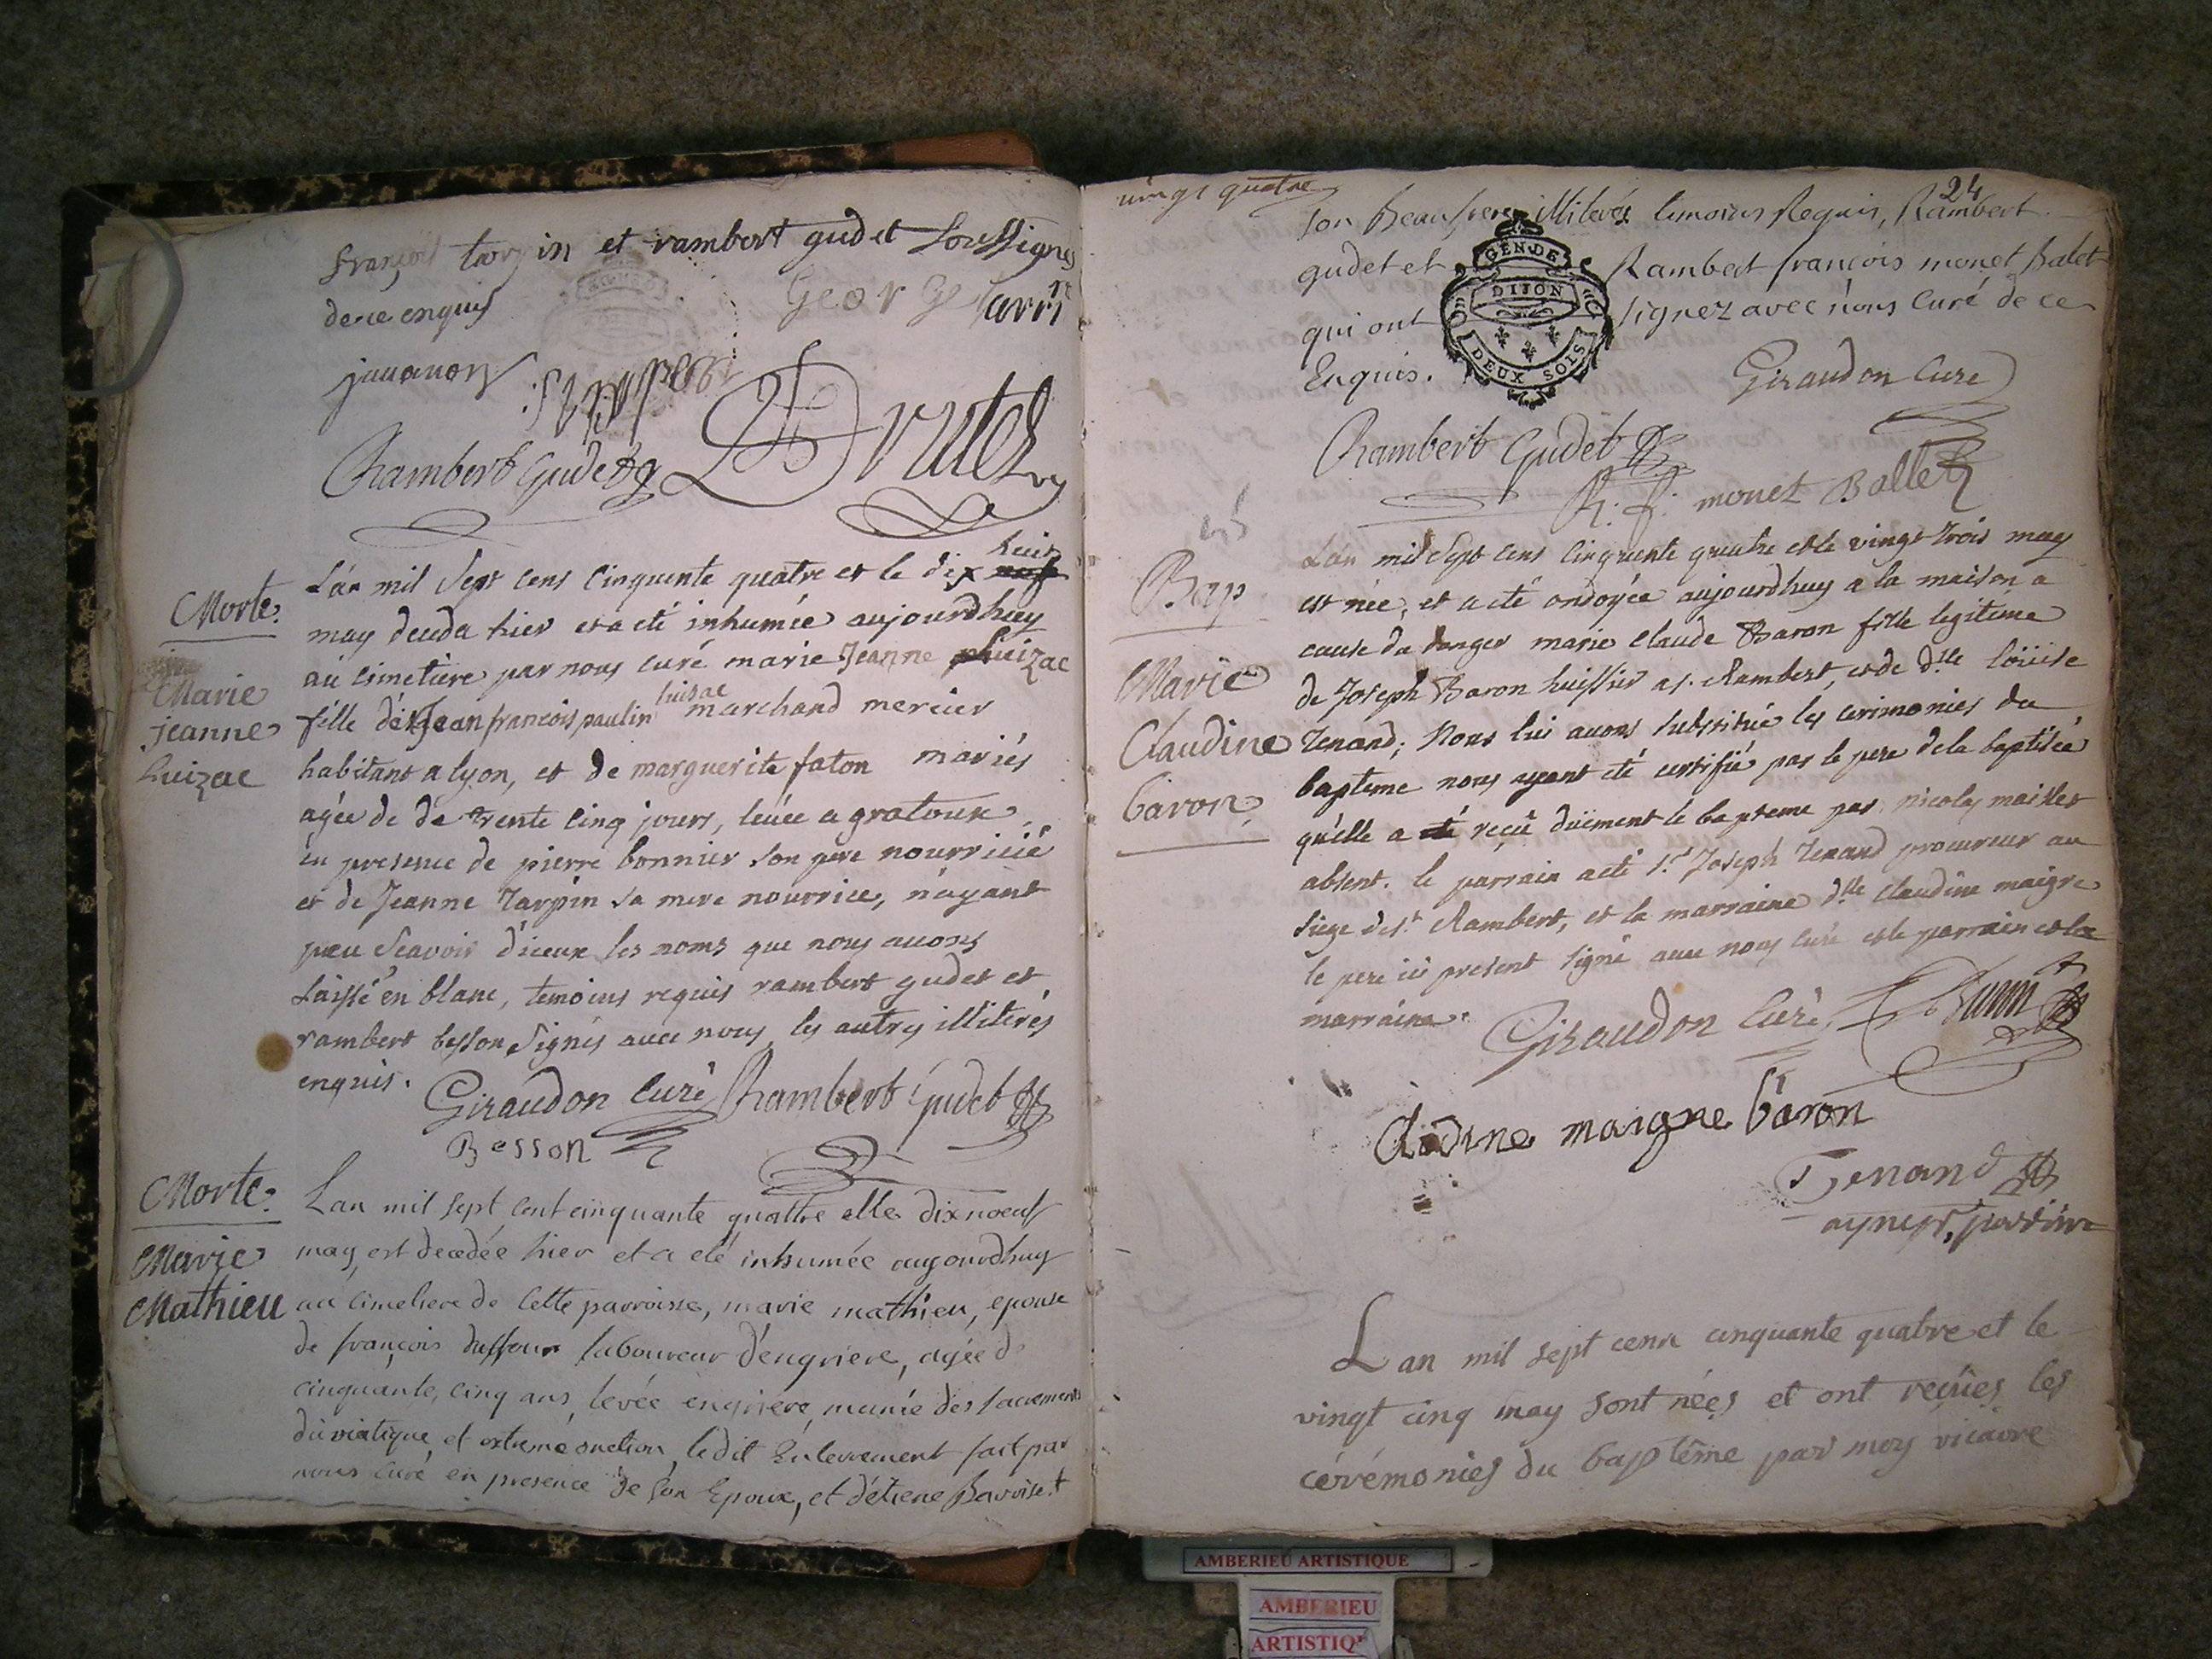 françois tarpin et rambert gudet soussignes
de ce enquis
George Tarpin
juuanon
Chambert Gudet
Drutel
Morte.
Marie
jeanne
Luizac
L'an mil sept cens cinquente quatre et le dix huit
may deceda hier et a eté inhumée aujourdhuy
au cimetiere par nous curé marie Jeanne Luizac
fille de Jean francois paulin luisac marchand mercier
habitant a lyon, et de marguerite faton mariés
agée de de trente cinq jours, levée a gratoux
en presence de pierre bonnier son pere nourricié
et de Jeanne Tarpin sa mere nourrice, n'ayant
peu sçavoir d'iceux les noms que nous auons
laissé en blanc, temoins requis rambert gudet et
rambert besson signés auec nous, les autres illiterés
enquis.
Giraudon Curé Chambert Gudet
Besson
Morte.
Marie
Mathieu
Lan mil sept cent cinquante quattre et le dix noeuf
may, est decedée hier et a eté inhumée aujourdhuy
au cimetiere de cette parroisse, marie mathieu, epouse
de françois duffour laboureur d'engriere, agée de
cinquante, cinq ans, levée engriere, munie des sacrements
du viatique, et extreme onction, ledit Enterrement fait par
nous curé en presence de son Epoux, et d'étiene Barvise.t
vingt quatre
24
son Beaufrere illiterés temoins Requis, Rambert
gudet et Rambert françois monet Balet
qui ont signez avec nous Curé de ce
Enquis.
GEN. DE
DIJON
DEUX SOLS
Giraudon Cure
Chambert Gudet
R. f. monet Ballet
Bap
Marie
Claudine
baron
L'an mil sept cens cinquente quatre et le vingt trois may
est née, et a eté ondoyée aujourdhuy a la maison a
cause du danger marie Claude Baron fille legitime
de Joseph Baron huissier a s. Rambert, et de dlle loüise
Tenand; Nous lui auons substitué les cerimonies du
bapteme nous ayant eté certifié par le pere de la baptisée
qu'elle a reçû düement le bapteme par nicolas maistet
absent. le parrain a eté s.r Joseph Tenand procureur au
siege de s.t Rambert, et la marraine dlle Claudine maigre
le pere ici present signé auec nous curé et le parrain et la
marraine.
Giraudon Curé, Baron
Clodine maigne baron
Tenand
Lan mil sept cent cinquante quatre et le
vingt cinq may sont nées et ont reçües les
cérémonies du baptême par moy vicaire
AMBERIEU ARTISTIQUE
AMBERIEU
ARTISTIQ